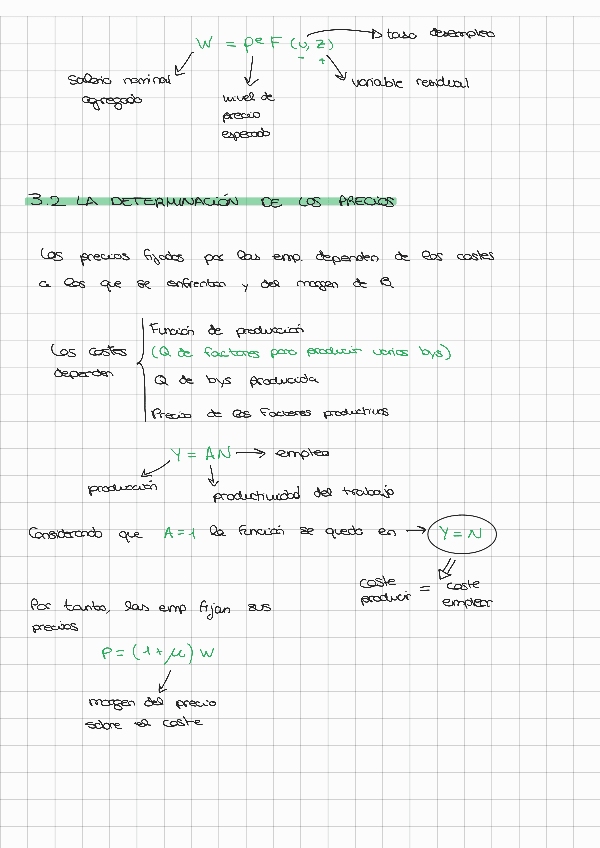 W = Pe F (u, z) → tasa desempleo
- +
salario nominal agregado
nivel de precio esperado
variable residual
3.2 LA DETERMINACIÓN DE LOS PRECIOS
Los precios fijados por las emp. dependen de los costes
a los que se enfrentan y del margen de Q
Los costes dependen
Función de producción
(Q de factores para producir varios bys)
Q de bys producida
Precio de los factores productivos
Y = AN → empleo
producción
productividad del trabajo
Considerando que A=1 la función se queda en → Y = N
coste producir = coste emplear
Por tanto, las emp fijan sus
precios
P = (1+μ) W
margen del precio
sobre el coste